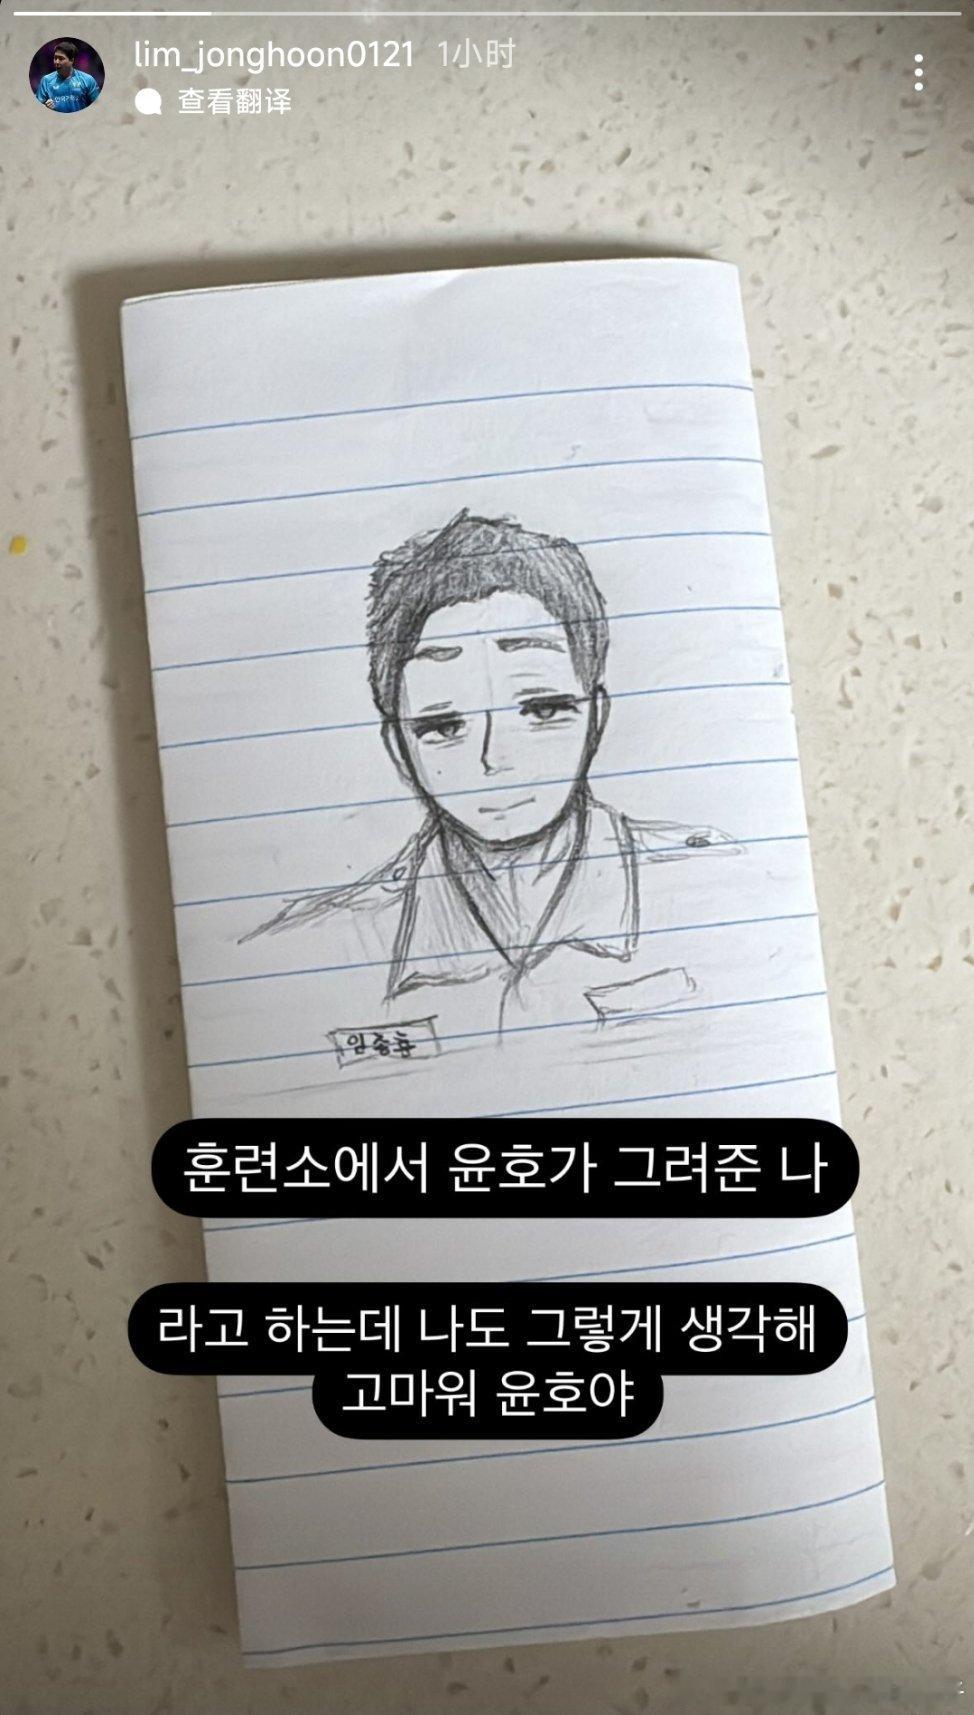 lim_jonghoon0121 1小时
查看翻译
임종훈
훈련소에서 윤호가 그려준 나
라고 하는데 나도 그렇게 생각해
고마워 윤호야